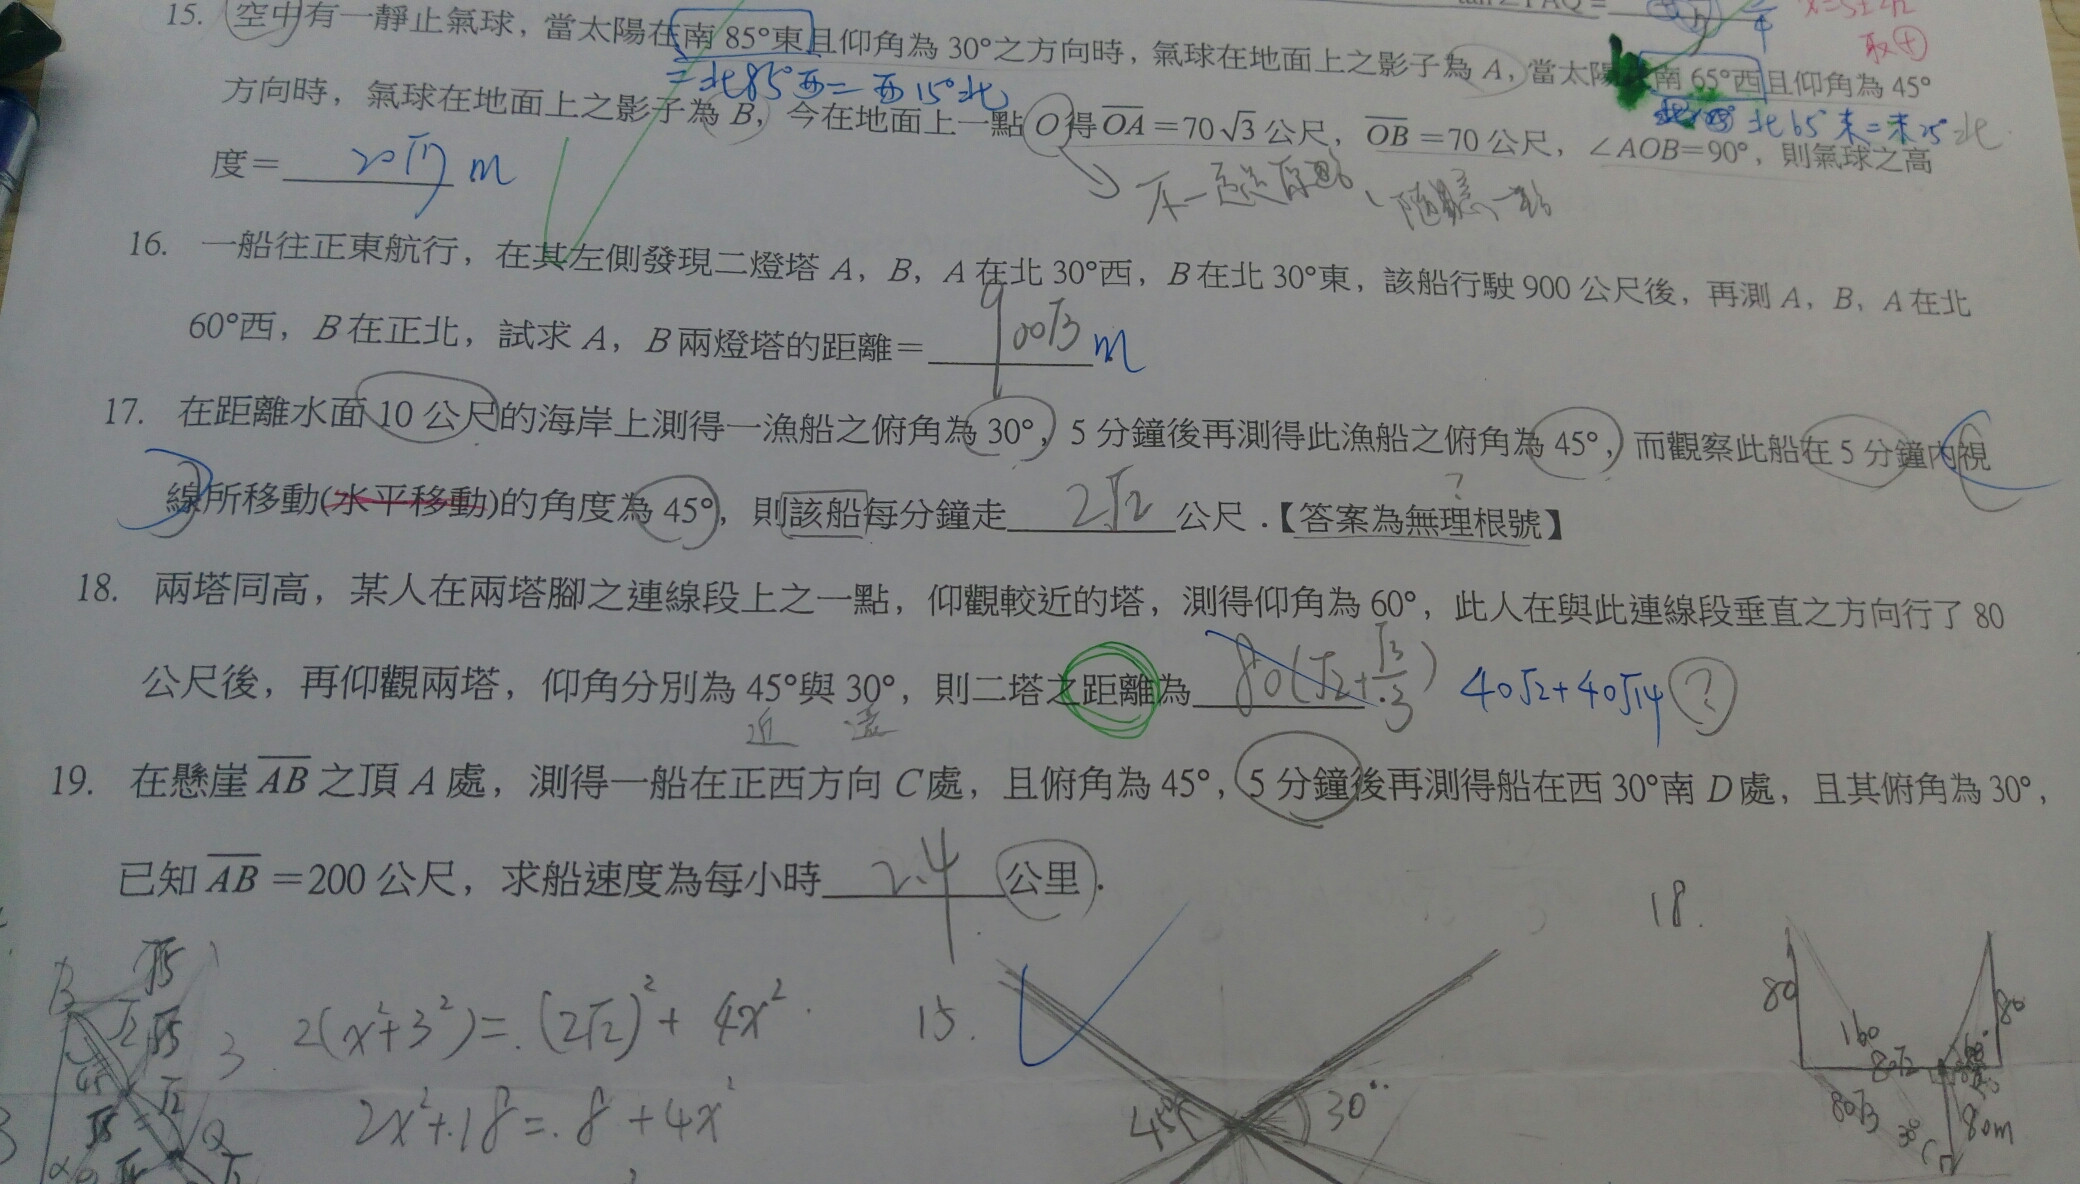 tan∠PAQ=
取⊕
15. 空中有一靜止氣球，當太陽在南 85°東且仰角為 30°之方向時，氣球在地面上之影子為 A，當太陽在南 65°西且仰角為 45°
=北85°西=西15°北
北65°東=東25°北
方向時，氣球在地面上之影子為 B，今在地面上一點 O 得 OA=70√3 公尺，OB=70 公尺，∠AOB=90°，則氣球之高
度= 20√7 m
16. 一船往正東航行，在其左側發現二燈塔 A，B，A 在北 30°西，B 在北 30°東，該船行駛 900 公尺後，再測 A，B，A 在北
60°西，B 在正北，試求 A，B 兩燈塔的距離= 900√3 m
17. 在距離水面 10 公尺的海岸上測得一漁船之俯角為 30°，5 分鐘後再測得此漁船之俯角為 45°，而觀察此船在 5 分鐘內視
線所移動(水平移動)的角度為 45°，則該船每分鐘走 2√2 公尺．【答案為無理根號】
?
18. 兩塔同高，某人在兩塔腳之連線段上之一點，仰觀較近的塔，測得仰角為 60°，此人在與此連線段垂直之方向行了 80
公尺後，再仰觀兩塔，仰角分別為 45°與 30°，則二塔之距離為 80(√2+√3/3) 40√2+40√14 ?
近 遠
19. 在懸崖 AB 之頂 A 處，測得一船在正西方向 C 處，且俯角為 45°，5 分鐘後再測得船在西 30°南 D 處，且其俯角為 30°，
已知 AB=200 公尺，求船速度為每小時 2.4 公里．
18.
B √5
√2 3
2(x²+3²)=(2√2)²+4x²
15.
80 160 80√2 80
2x²+18=8+4x²
45° 30°
80√3 30° 80m